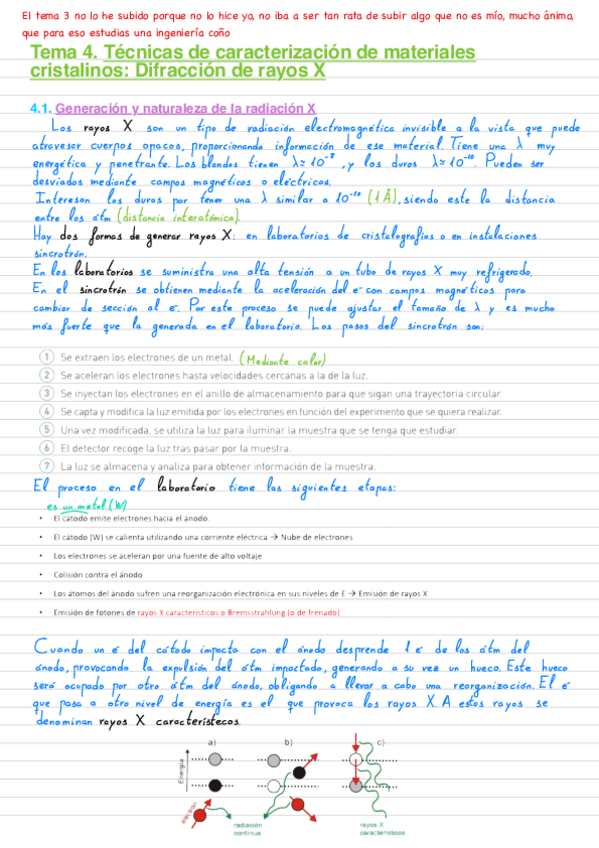 El tema 3 no lo he subido porque no lo hice yo, no iba a ser tan rata de subir algo que no es mío, mucho ánimo,
que para eso estudias una ingeniería coño
Tema 4. Técnicas de caracterización de materiales
cristalinos: Difracción de rayos X
4.1. Generación y naturaleza de la radiación X
Los rayos X son un tipo de radiación electromagnética invisible a la vista que puede
atravesar cuerpos opacos, proporcionando información de ese material. Tiene una λ muy
energética y penetrante. Los blandos tienen λ≃10⁻⁸, y los duros λ≃10⁻¹⁰. Pueden ser
desviados mediante campos magnéticos o eléctricos.
Interesan los duros por tener una λ similar a 10⁻¹⁰ (1 Å), siendo este la distancia
entre los átm (distancia interatómica).
Hay dos formas de generar rayos X: en laboratorios de cristalografías o en instalaciones
sincrotrón.
En los laboratorios se suministra una alta tensión a un tubo de rayos X muy refrigerado.
En el sincrotrón se obtienen mediante la aceleración del e⁻ con campos magnéticos para
cambiar de sección al e⁻. Por este proceso se puede ajustar el tamaño de λ y es mucho
más fuerte que la generada en el laboratorio. Los pasos del sincrotrón son:
1 Se extraen los electrones de un metal. (Mediante calor)
2 Se aceleran los electrones hasta velocidades cercanas a la de la luz.
3 Se inyectan los electrones en el anillo de almacenamiento para que sigan una trayectoria circular.
4 Se capta y modifica la luz emitida por los electrones en función del experimento que se quiera realizar.
5 Una vez modificada, se utiliza la luz para iluminar la muestra que se tenga que estudiar.
6 El detector recoge la luz tras pasar por la muestra.
7 La luz se almacena y analiza para obtener información de la muestra.
El proceso en el laboratorio tiene las siguientes etapas:
es un metal (W)
• El cátodo emite electrones hacia el ánodo.
• El cátodo (W) se calienta utilizando una corriente eléctrica → Nube de electrones
• Los electrones se aceleran por una fuente de alto voltaje
• Colisión contra el ánodo
• Los átomos del ánodo sufren una reorganización electrónica en sus niveles de E → Emisión de rayos X
• Emisión de fotones de rayos X característicos o Bremsstrahlung (o de frenado)
Cuando un e⁻ del cátodo impacta con el ánodo desprende 1 e⁻ de los átm del
ánodo, provocando la expulsión del átm impactado, generando a su vez un hueco. Este hueco
será ocupado por otro átm del ánodo, obligando a llevar a cabo una reorganización. El e⁻
que pasa a otro nivel de energía es el que provoca los rayos X. A estos rayos se
denominan rayos X característicos.
a) b) c)
Energía
electrón
radiación
continua
rayos X
característicos